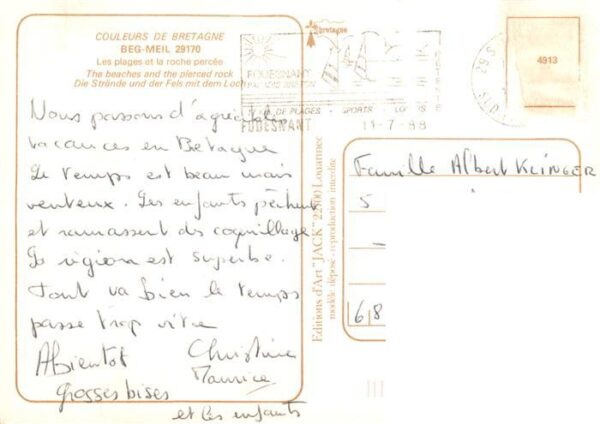 COULEURS DE BRETAGNE
BEG-MEIL 29170
Les plages et la roche percée
The beaches and the pierced rock
Die Strände und der Fels mit dem Loch
Bretagne
FOUESNANT
PLAGES - SPORTS - LOISIRS
FOUESNANT
11-7-88
4913
Nous passons d'agréables
vacances en Bretagne
Le temps est beau mais
venteux. Les enfants pêchent
et ramassent des coquillages
La région est superbe.
Tout va bien le temps
passe trop vite
Abientot Christine
Maurice
Grosses bises
et les enfants
Editions d'Art "JACK" Louannec
modèle déposé - reproduction interdite
Famille Albert KLINGER
5
68